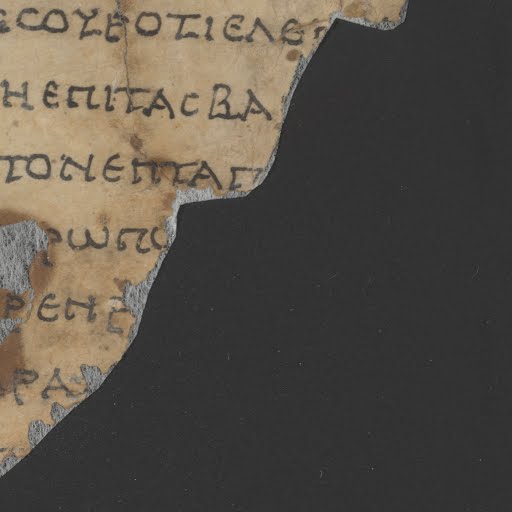 ϹΟΥΕΟΤΙΕΛΕ
ΗΕΠΙΤΑϹΒΑ
ΤΟΝΕΠΤΑΠ
ΡΩΠΟ
ΡΕΝ
ΡΑ